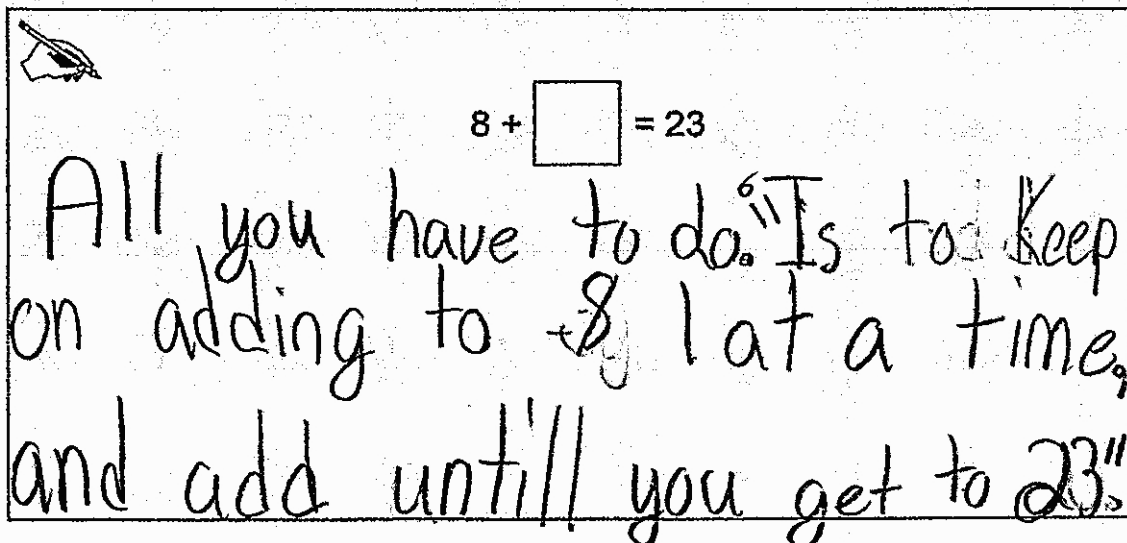 8 + = 23
All you have to do. "Is to Keep
on adding to 8 1 at a time,
and add untill you get to 23."